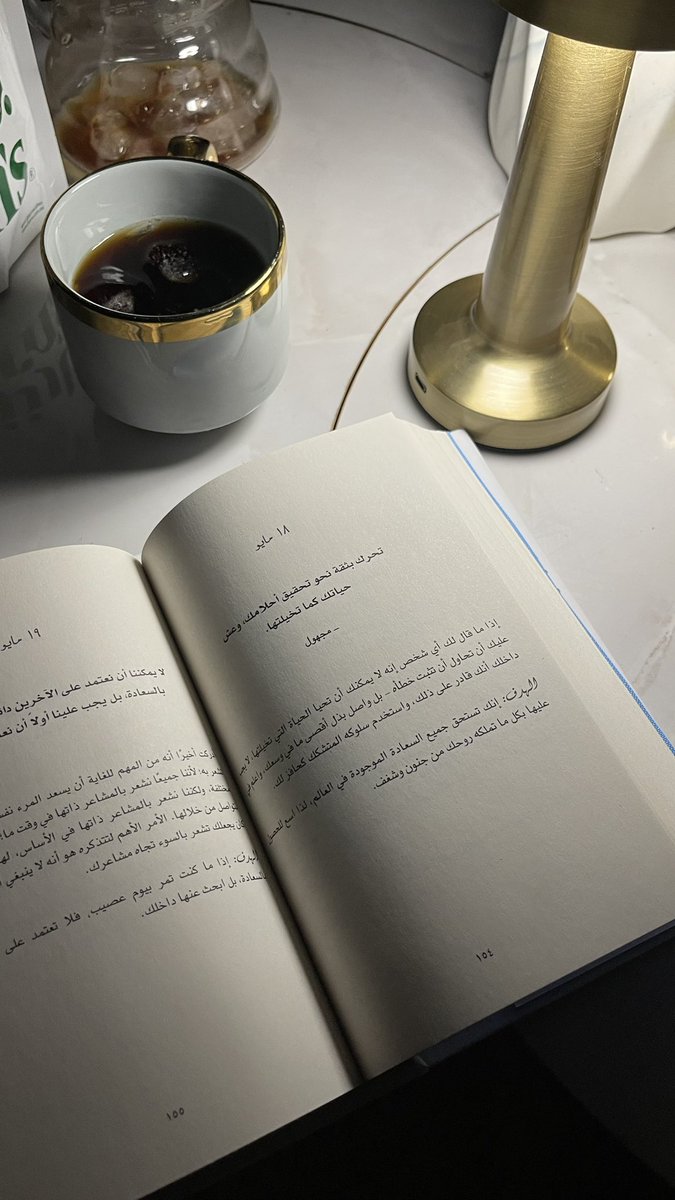 ١٨ مايو
تحرك بثقة نحو تحقيق أحلامك، وعش
حياتك كما تخيلتها.
– مجهول
إذا ما قال لك أي شخص إنه لا يمكنك أن تحيا الحياة التي تخيلتها، لا يجب
عليك أن تحاول أن تثبت خطأه – بل واصل بذل أقصى ما في وسعك، واعلم في
داخلك أنك قادر على ذلك، واستخدم سلوكه المتشكك كحافز لك.
الهدف: إنك تستحق جميع السعادة الموجودة في العالم، لذا اسع للحصول
عليها بكل ما تملكه روحك من جنون وشغف.
١٥٤
١٩ مايو
لا يمكننا أن نعتمد على الآخرين
بالسعادة، بل يجب علينا أولاً أن
أخيرًا أنه من المهم للغاية أن يسعد المرء
به؛ لأننا جميعًا نشعر بالمشاعر ذاتها في وقت
ولكننا نشعر بالمشاعر ذاتها في الأساس،
من خلالها. الأمر الأهم لتتذكره هو أنه لا ينبغي
يجعلك تشعر بالسوء تجاه مشاعرك.
الهدف: إذا ما كنت تمر بيوم عصيب، فلا تعتمد على
بالسعادة، بل ابحث عنها داخلك.
١٥٥